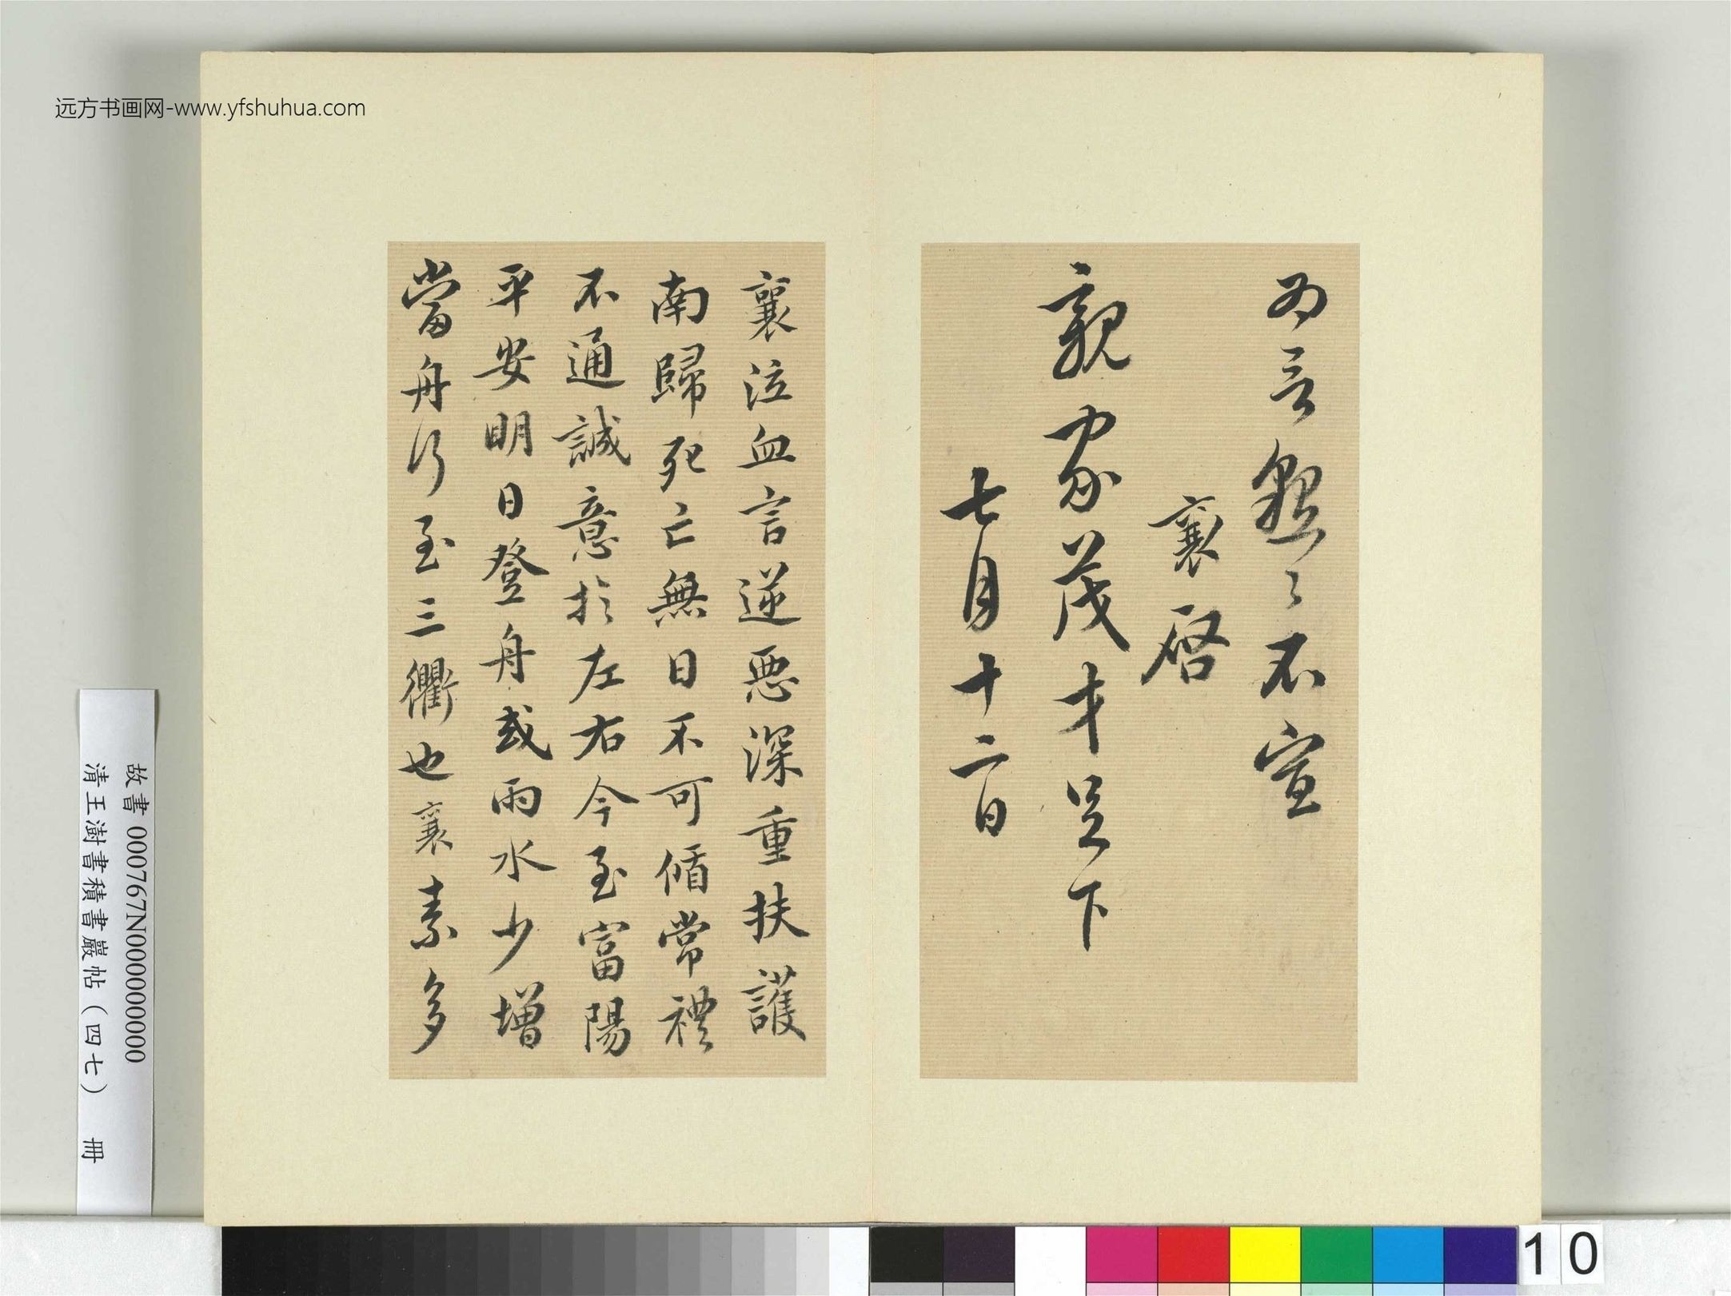 远方书画网-www.yfshuhua.com
為言愁〻不宣
襄啓
親家茂才足下
七月十二日
襄泣血言逆惡深重扶護
南歸死亡無日不可循常禮
不通誠意於左右今至富陽
平安明日登舟或雨水少增
當舟行至三衢也襄素多
故書 000767N000000000
清王澍書積書巖帖(四七) 冊
10